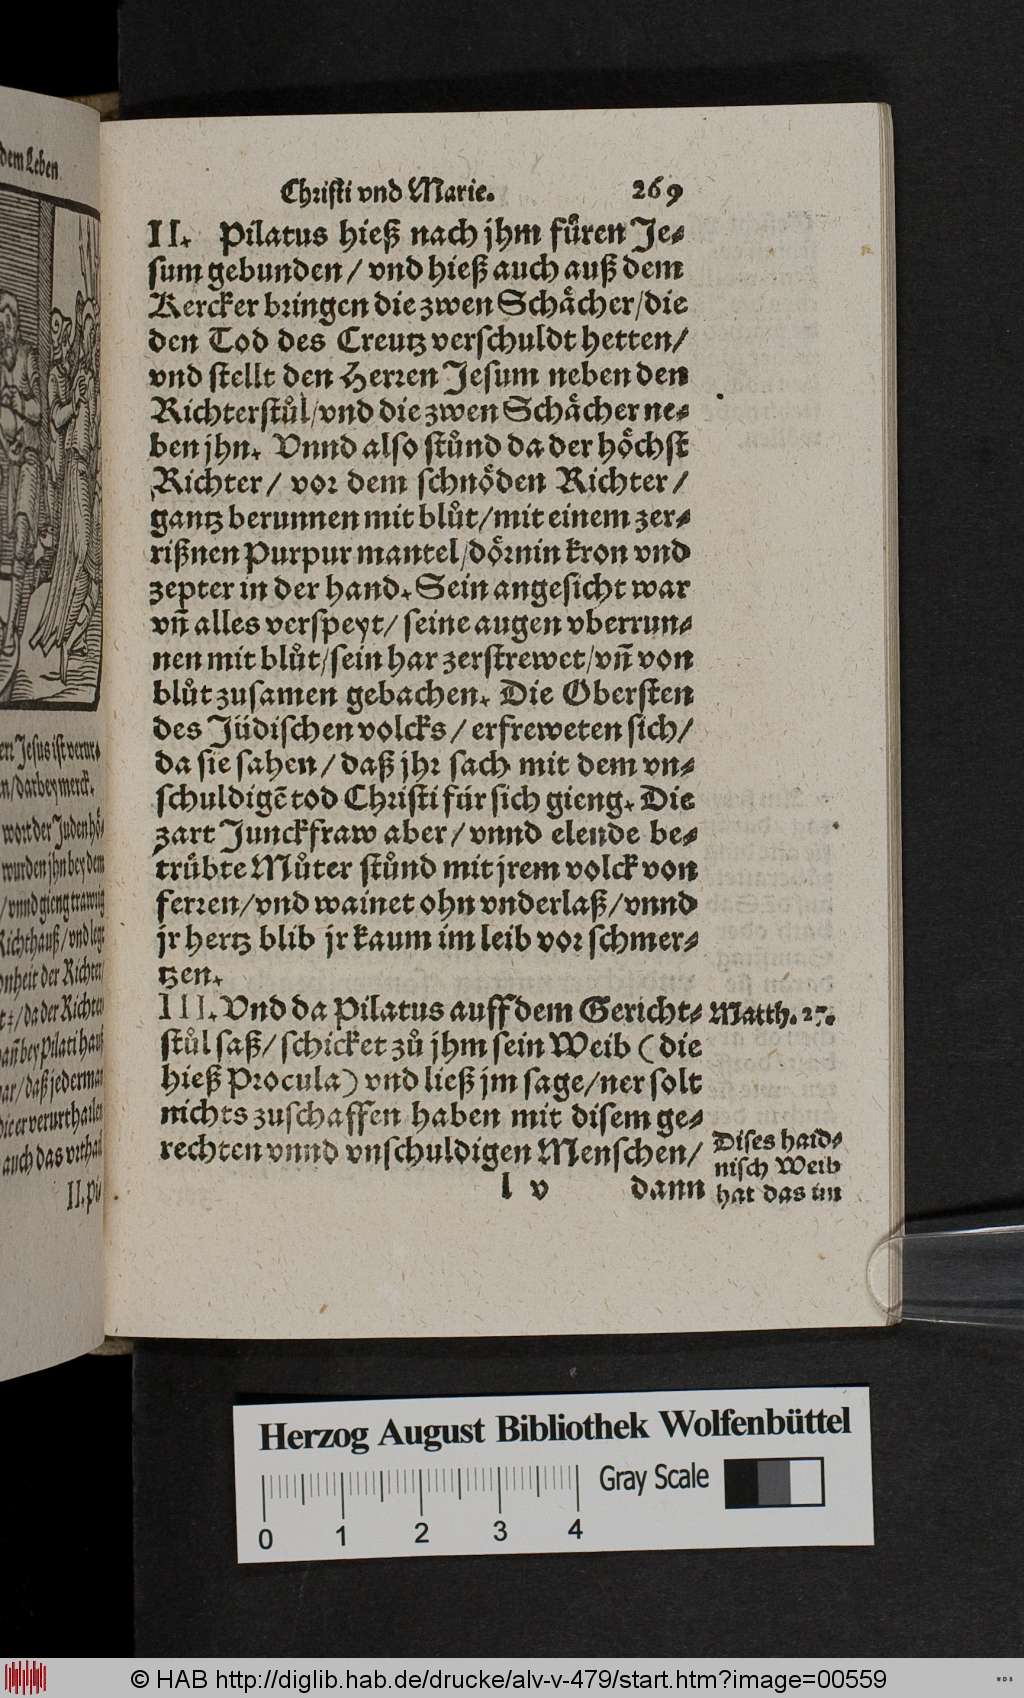 dem Leben
Jesus ist verur⸗
n/darbey merck.
wort der Juden hö⸗
wurden jhn bey dem
/vnnd gieng trawrig
Richthauß/vnd lege
onheit der Richter/
da der Richter
bey Pilati hauß
war/daß jederman
auch das vrthail
II. Pi⸗
Christi vnd Marie. 269
II. Pilatus hieß nach jhm fuͤren Je⸗
sum gebunden/ vnd hieß auch auß dem
Kercker bringen die zwen Schaͤcher/die
den Tod des Creutz verschuldt hetten/
vnd stellt den Herren Jesum neben den
Richterstuͦl/vnd die zwen Schaͤcher ne⸗
ben jhn. Vnnd also stuͦnd da der hoͤchst
Richter/ vor dem schnoͤden Richter/
gantz berunnen mit bluͦt/mit einem zer⸗
rißnen Purpur mantel/doͤrnin kron vnd
zepter in der hand. Sein angesicht war
vñ alles verspeyt/ seine augen vberrun⸗
nen mit bluͦt/sein har zerstrewet/vñ von
bluͦt zusamen gebachen. Die Obersten
des Jüdischen volcks/ erfreweten sich/
da sie sahen/ daß jhr sach mit dem vn⸗
schuldigẽ tod Christi für sich gieng. Die
zart Junckfraw aber/ vnnd elende be⸗
truͤbte Muͦter stuͦnd mit jrem volck von
ferren/vnd wainet ohn vnderlaß/vnnd
jr hertz blib jr kaum im leib vor schmer⸗
tzen.
III. Vnd da Pilatus auff dem Gericht⸗ Matth. 27.
stuͦl saß/ schicket zuͦ jhm sein Weib (die
hieß Procula) vnd ließ jm sage/ner solt
nichts zuschaffen haben mit disem ge⸗
rechten vnnd vnschuldigen Menschen/
Dises haid⸗
nisch Weib
hat das im
l v dann
Herzog August Bibliothek Wolfenbüttel
Gray Scale
0 1 2 3 4
© HAB http://diglib.hab.de/drucke/alv-v-479/start.htm?image=00559